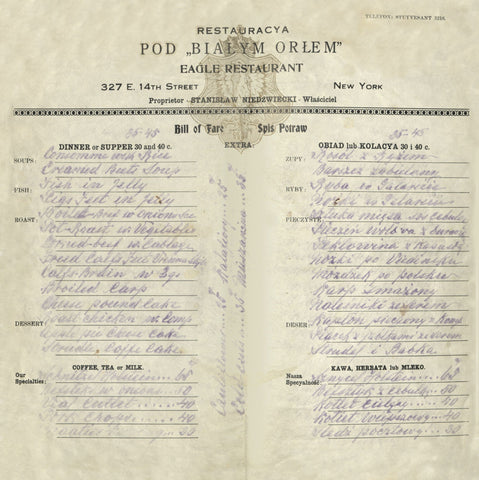 TELEFON: STUYVESANT 3218.
RESTAURACYA
POD „BIAŁYM ORŁEM”
EAGLE RESTAURANT
327 E. 14TH STREET NEW YORK
Proprietor - STANISŁAW NIEDZWIECKI - Właściciel
Bill of Fare Spis Potraw
EXTRA:
35-45
DINNER or SUPPER 30 and 40 c.
SOUPS: Consomme with Rice
Creamed Beets Soup
FISH: Fish in Jelly
Pigs Feet in Jelly
ROAST: Boiled-Beef w Onion
Pot-Roast w Vegetables
Corned-beef w Cabbage
Fried Calfs Feet
Calfs Brain w Egg
Broiled Carp
Cheese pound Cake
DESSERT: Roast Chicken w Comp
Apple or Cheese Cake
Strudel, Coffee Cake
COFFEE, TEA or MILK.
Our Specialties:
65
50
Veal Cutlet 40
Pork Chops 40
35-45
OBIAD lub KOLACYA 30 i 40 c.
ZUPY: Rosół z Ryżem
Barszcz zabielany
RYBY: Ryba w Galarecie
Nóżki w Galarecie
PIECZYSTE: Sztuka mięsa w Cebuli
Pieczeń Wołowa z Jarzyną
Peklowina z Kapustą
Nóżki po Wiedeńsku
Móżdżek po polsku
Karp Smażony
Kołduniki z serem
DESER: Kapłon pieczony z Komp
Placek z jabłkami z serem
Strudel i Babka
KAWA, HERBATA lub MLEKO.
Nasza Specyalność:
Sznycel Holstein 65
z Cebulą 50
Kotlet Cielęcy 40
Kotlet Wieprzowy 40